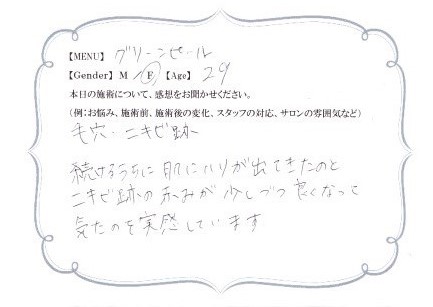 【MENU】 グリーンピール
【Gender】 M ・ F 【Age】 29
本日の施術について、感想をお聞かせください。
(例:お悩み、施術前、施術後の変化、スタッフの対応、サロンの雰囲気など)
毛穴・ニキビ跡
続けるうちに肌にハリが出てきたのと
ニキビ跡の赤みが少しづつ良くなって
気たのを実感しています